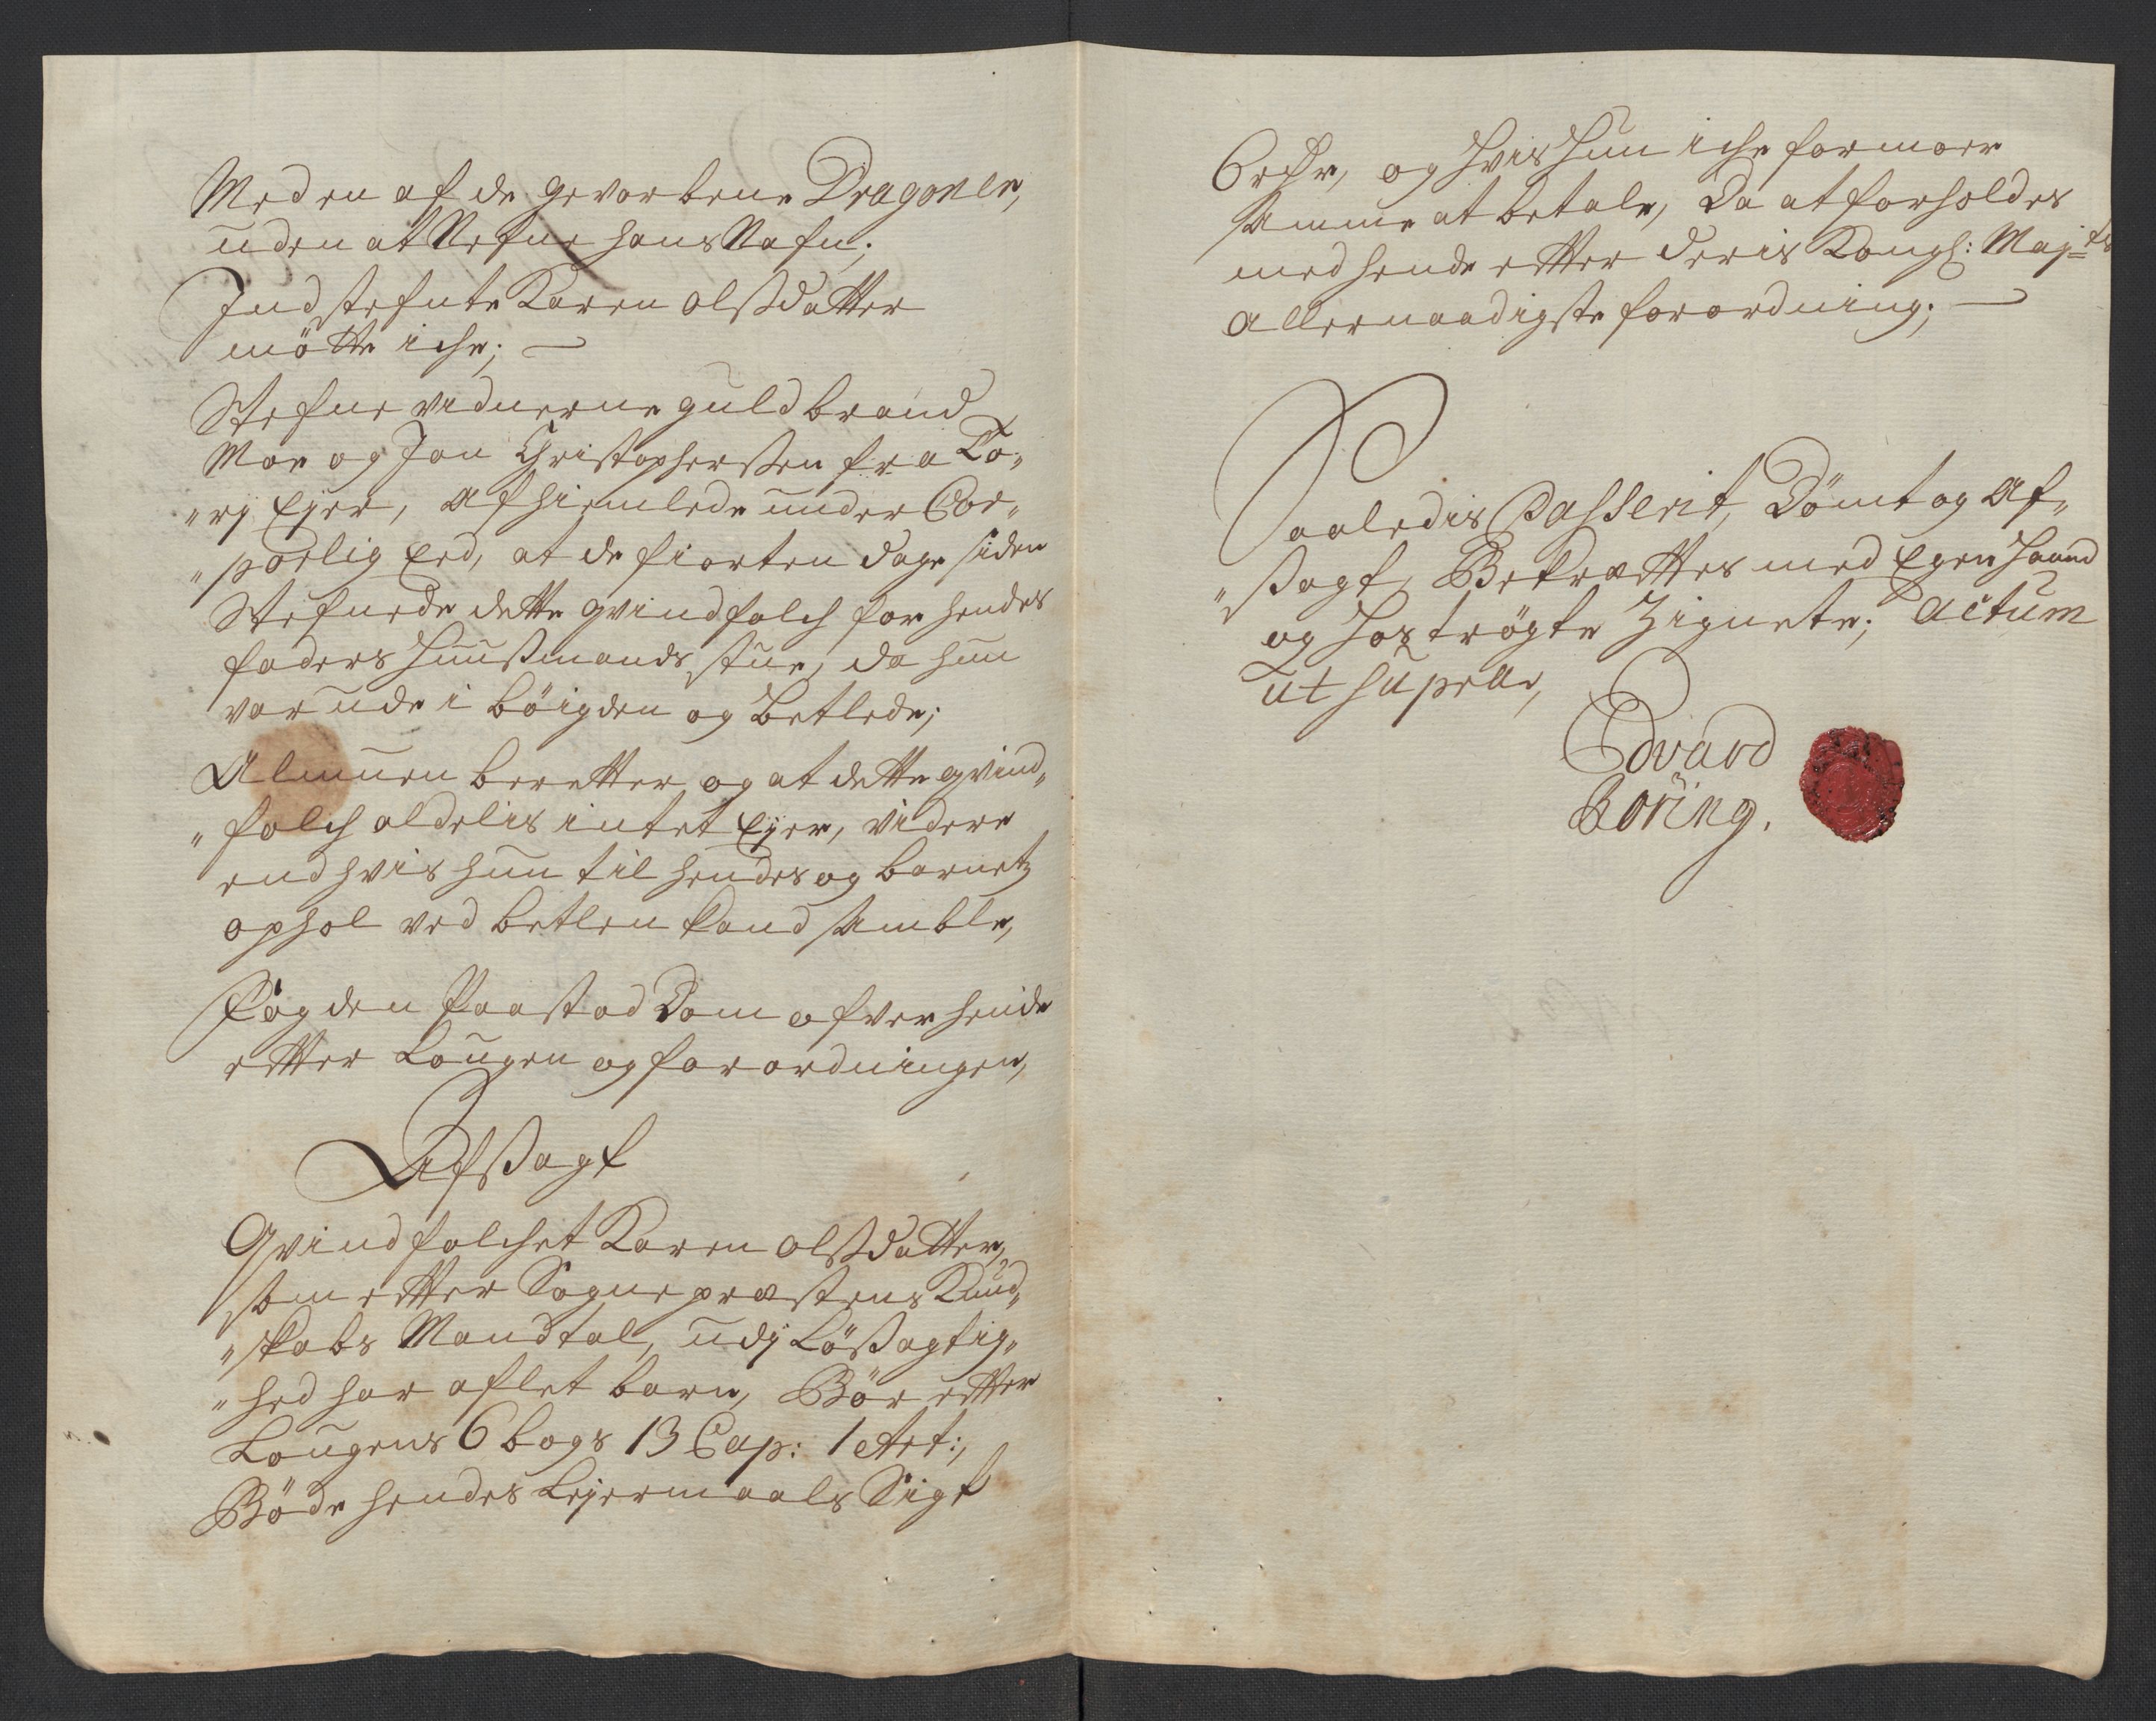 Med en af de gevorbene Dragoner,
uden at Nefne hans Nafn;
Indstefnte Karen olßdatter
mötte iche;
Stefne vidnerne guldbrand
Moe og Jon Christophersßen fra To„
„rj Ejer, afhiemlede under Cor„
„porlig Eed, at de fiorten dage siden
Stefnede dette qvindfolch for hendes
faders Huußmands stue, da hun
var ude i böigden og Betlede;
Almuen beretter og at dette qvind„
„folch aldelis intet Ejer, videre
end hvis hun til hendes og barnetz
ophol ved betlen kand samble,
Fogden Paastod Dom ofver hende
etter Lougen og forordningen,
Afsßagt
Qvindfolchet Karen olßdatter,
som etter Sogneprestens Kund„
„skabs Mandtal, udj Lößagtig„
„hed har aflet barn, Bör etter
Lougens 6 bogs 13 Cap: 1 Art:,
Böde hendes Lejermaals Sigt
6 rdr, og hvis hun iche formaar
samme at betale, Da at forholdes
med hende etter deris Kongl: Majts
Allernaadigste forordning;
Saaledis Passerit, Dömt og Af„
„ßagt, Bekrættes med Egen haand
og hoströgte Zignete; Actum
ut supra,
Edvard
Böring.